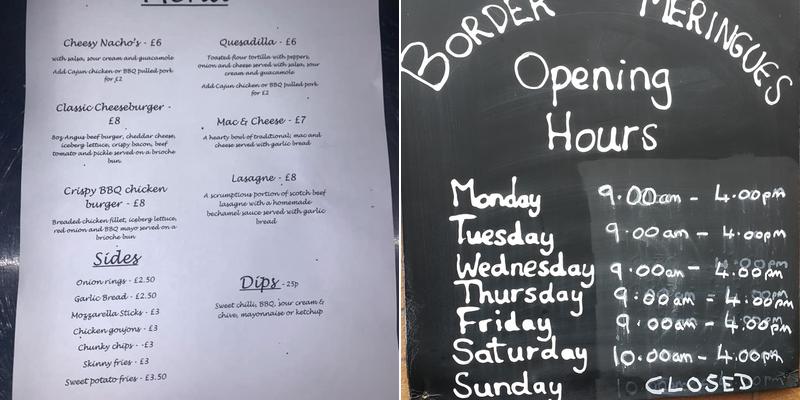 Menu
Cheesy Nacho's - £6
with salsa, sour cream and guacamole
Add Cajun chicken or BBQ pulled pork
for £2
Classic Cheeseburger -
£8
8oz Angus beef burger, cheddar cheese,
iceberg lettuce, crispy bacon, beef
tomato and pickle served on a brioche
bun
Crispy BBQ chicken
burger - £8
Breaded chicken fillet, iceberg lettuce,
red onion and BBQ mayo served on a
brioche bun
Sides
Onion rings - £2.50
Garlic Bread - £2.50
Mozzarella Sticks - £3
Chicken goujons - £3
Chunky chips - £3
Skinny fries - £3
Sweet potato fries - £3.50
Quesadilla - £6
Toasted flour tortilla with peppers,
onion and cheese served with salsa, sour
cream and guacamole
Add Cajun chicken or BBQ pulled pork
for £2
Mac & Cheese - £7
A hearty bowl of traditional; mac and
cheese served with garlic bread
Lasagne - £8
A scrumptious portion of scotch beef
lasagne with a homemade
bechamel sauce served with garlic
bread
Dips - 25p
Sweet chilli, BBQ, sour cream &
chive, mayonnaise or ketchup
BORDER MERINGUES
Opening
Hours
Monday 9.00am - 4.00pm
Tuesday 9.00am - 4.00pm
Wednesday 9.00am - 4.00pm
Thursday 9.00am - 4.00pm
Friday 9.00am - 4.00pm
Saturday 10.00am - 4.00pm
Sunday CLOSED